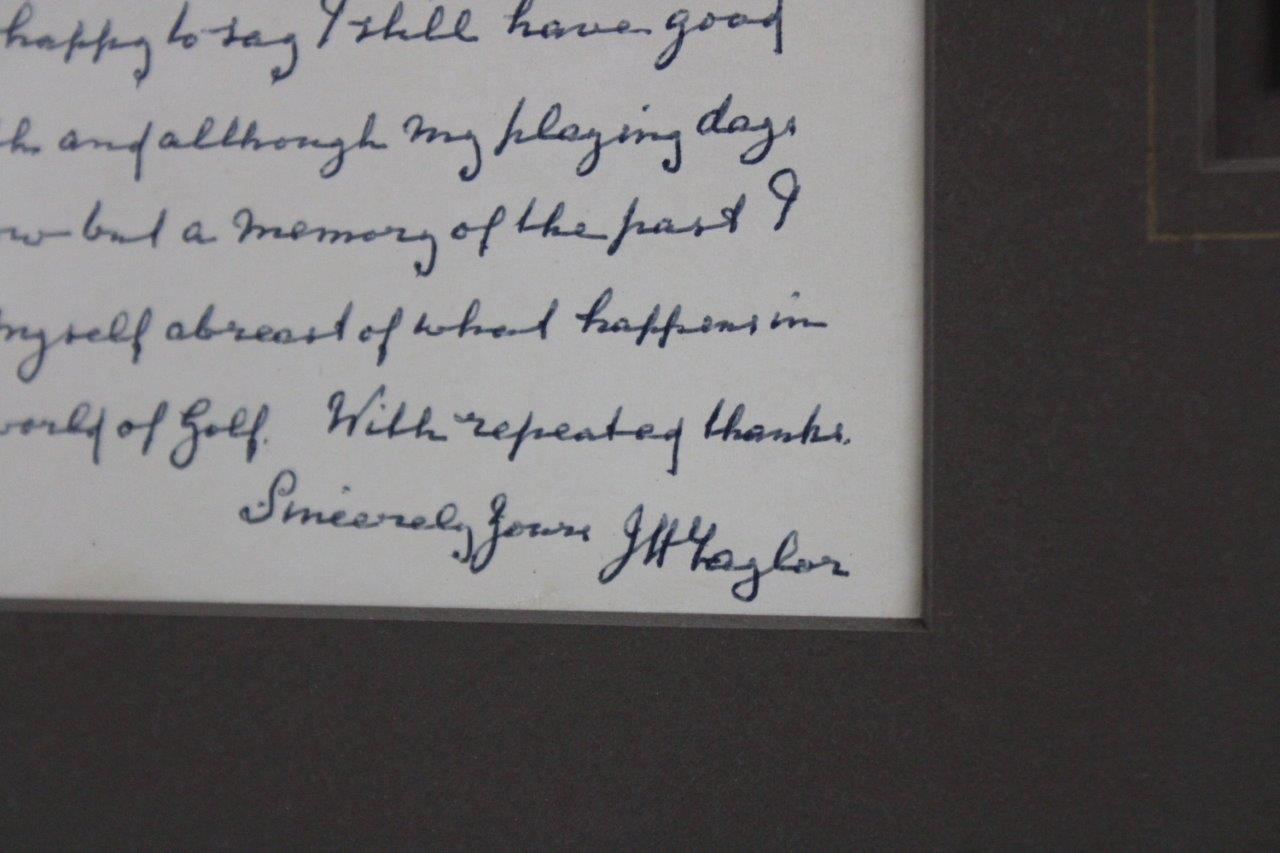 happy to say I still have good
th and although my playing days
ow but a memory of the past I
myself abreast of what happens in
world of Golf. With repeated thanks.
Sincerely Yours JH Taylor